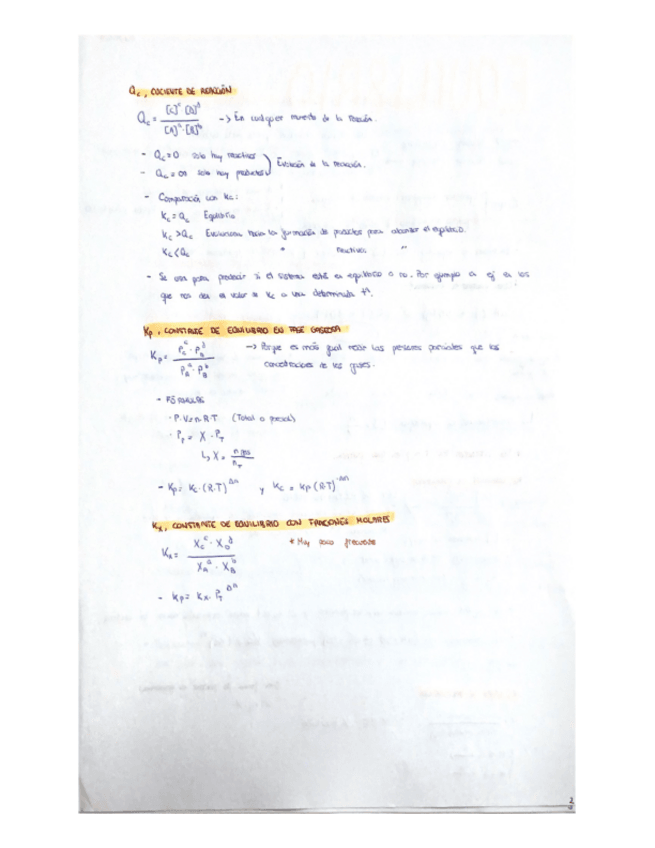 Qc, COCIENTE DE REACCIÓN
Qc = [C]^c [D]^d / [A]^a·[B]^b -> En cualquier momento de la reacción.
- Qc=0 solo hay reactivos
- Qc=∞ solo hay productos
Evolución de la reacción.
- Comparación con Kc:
Kc = Qc Equilibrio
Kc > Qc Evoluciona hacia la formación de productos para alcanzar el equilibrio.
Kc < Qc " reactivos "
- Se usa para predecir si el sistema está en equilibrio o no. Por ejemplo en ej en los
que nos den el valor de Kc a una determinada tª.
Kp, CONSTANTE DE EQUILIBRIO EN FASE GASEOSA
Kp = Pc^c · PD^d / PA^a · PB^b -> Porque es más medir las presiones parciales que las
concentraciones de los gases.
- FÓRMULAS
- P·V=n·R·T (Total o parcial)
- PP = X · PT
↳ X = / nT
- Kp = Kc·(R·T)^Δn y Kc = Kp(R·T)^-Δn
Kx, CONSTANTE DE EQUILIBRIO CON FRACCIONES MOLARES
Kx = Xc^c · XD^d / XA^a · XB^b * Muy poco frecuente
- Kp = Kx · PT^Δn
2